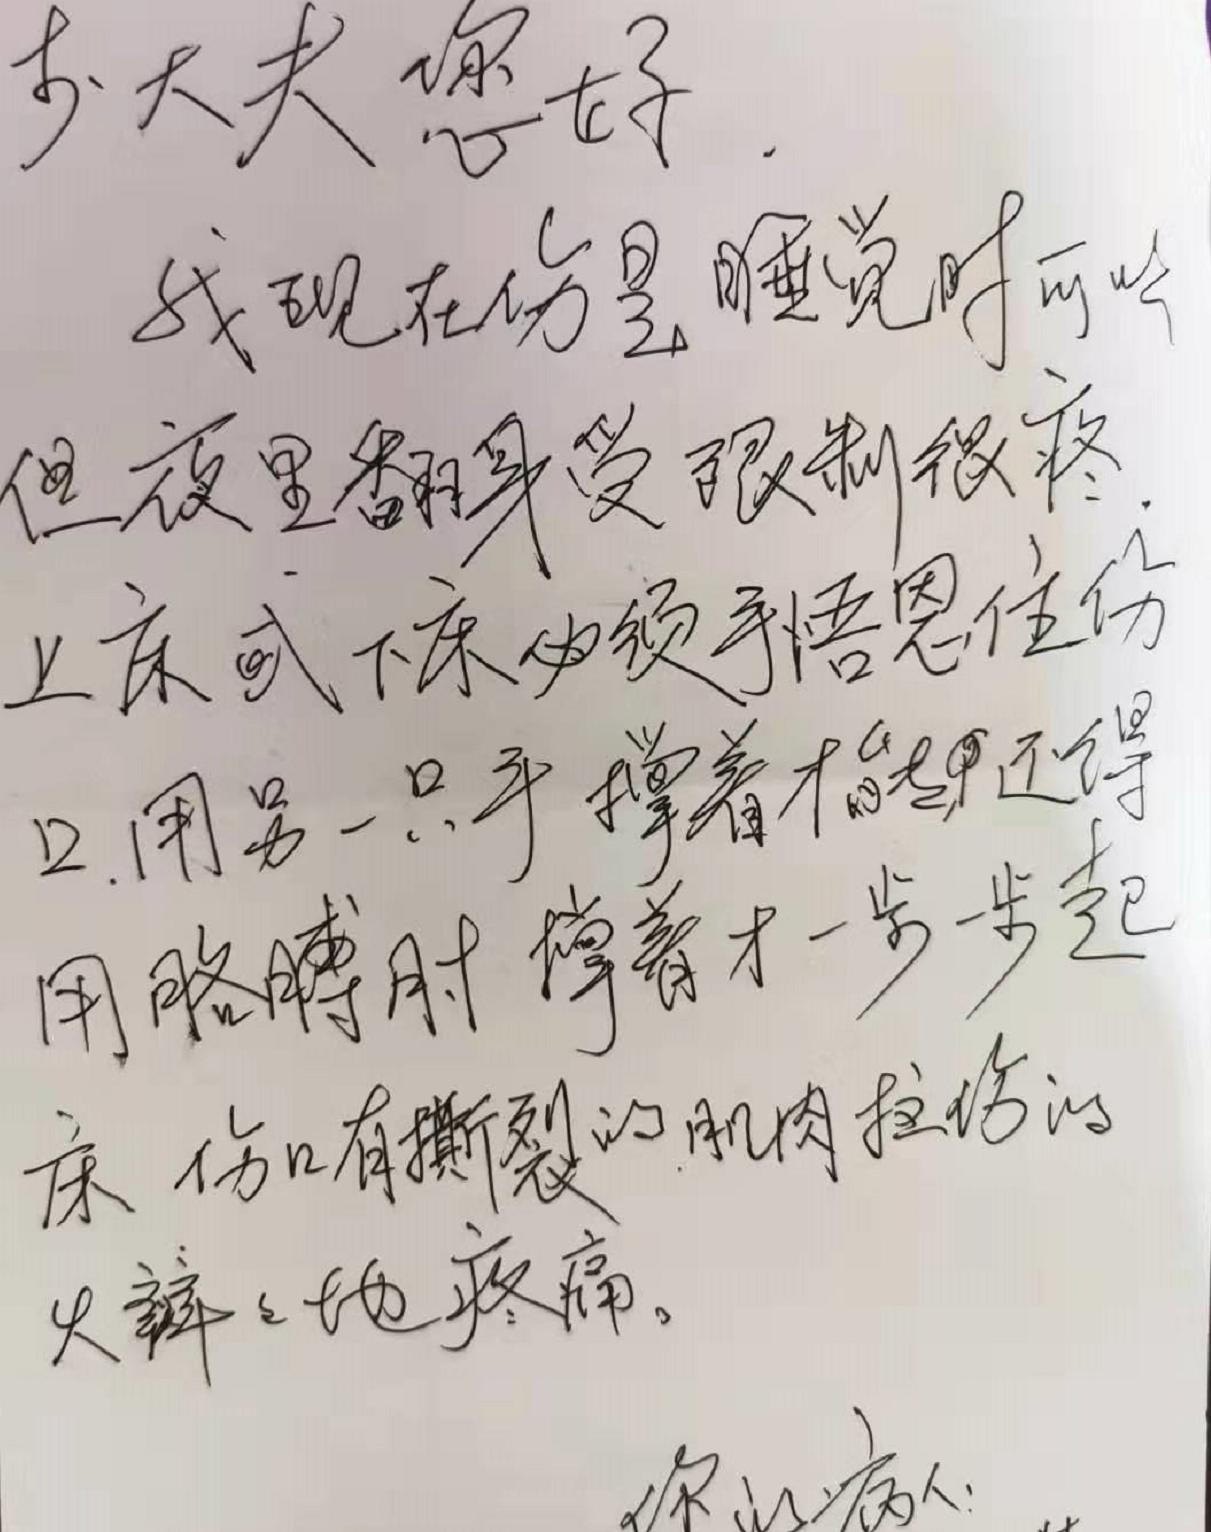 大夫您好.
我现在伤是睡觉时可以
但夜里翻身受限制很疼.
上床或下床必须手悟恩住伤
口.用另一只手撑着才能起还得
用胳膊肘撑着才一步一步起
床 伤口有撕裂的肌肉拉伤的
火辣々地疼痛。
你的病人: